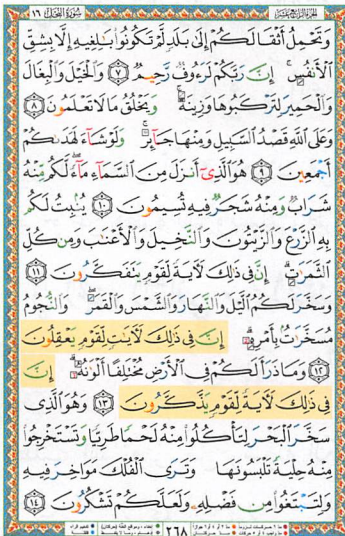 الجزء الرابع عشر سُورَةُ النَّحْلِ ١٦
وَتَحْمِلُ أَثْقَالَكُمْ إِلَىٰ بَلَدٍ لَّمْ تَكُونُوا۟ بَـٰلِغِيهِ إِلَّا بِشِقِّ
ٱلْأَنفُسِ ۚ إِنَّ رَبَّكُمْ لَرَءُوفٌ رَّحِيمٌ ٧ وَٱلْخَيْلَ وَٱلْبِغَالَ
وَٱلْحَمِيرَ لِتَرْكَبُوهَا وَزِينَةً ۚ وَيَخْلُقُ مَا لَا تَعْلَمُونَ ٨
وَعَلَى ٱللَّهِ قَصْدُ ٱلسَّبِيلِ وَمِنْهَا جَآئِرٌ ۚ وَلَوْ شَآءَ لَهَدَىٰكُمْ
أَجْمَعِينَ ٩ هُوَ ٱلَّذِىٓ أَنزَلَ مِنَ ٱلسَّمَآءِ مَآءً ۖ لَّكُم مِّنْهُ
شَرَابٌ وَمِنْهُ شَجَرٌ فِيهِ تُسِيمُونَ ١٠ يُنۢبِتُ لَكُم
بِهِ ٱلزَّرْعَ وَٱلزَّيْتُونَ وَٱلنَّخِيلَ وَٱلْأَعْنَـٰبَ وَمِن كُلِّ
ٱلثَّمَرَٰتِ ۗ إِنَّ فِى ذَٰلِكَ لَـَٔايَةً لِّقَوْمٍ يَتَفَكَّرُونَ ١١
وَسَخَّرَ لَكُمُ ٱلَّيْلَ وَٱلنَّهَارَ وَٱلشَّمْسَ وَٱلْقَمَرَ ۖ وَٱلنُّجُومُ
مُسَخَّرَٰتٌۢ بِأَمْرِهِۦٓ ۗ إِنَّ فِى ذَٰلِكَ لَـَٔايَـٰتٍ لِّقَوْمٍ يَعْقِلُونَ
١٢ وَمَا ذَرَأَ لَكُمْ فِى ٱلْأَرْضِ مُخْتَلِفًا أَلْوَٰنُهُۥٓ ۗ إِنَّ
فِى ذَٰلِكَ لَـَٔايَةً لِّقَوْمٍ يَذَّكَّرُونَ ١٣ وَهُوَ ٱلَّذِى
سَخَّرَ ٱلْبَحْرَ لِتَأْكُلُوا۟ مِنْهُ لَحْمًا طَرِيًّا وَتَسْتَخْرِجُوا۟
مِنْهُ حِلْيَةً تَلْبَسُونَهَا وَتَرَى ٱلْفُلْكَ مَوَاخِرَ فِيهِ
وَلِتَبْتَغُوا۟ مِن فَضْلِهِۦ وَلَعَلَّكُمْ تَشْكُرُونَ ١٤
٢٦٨